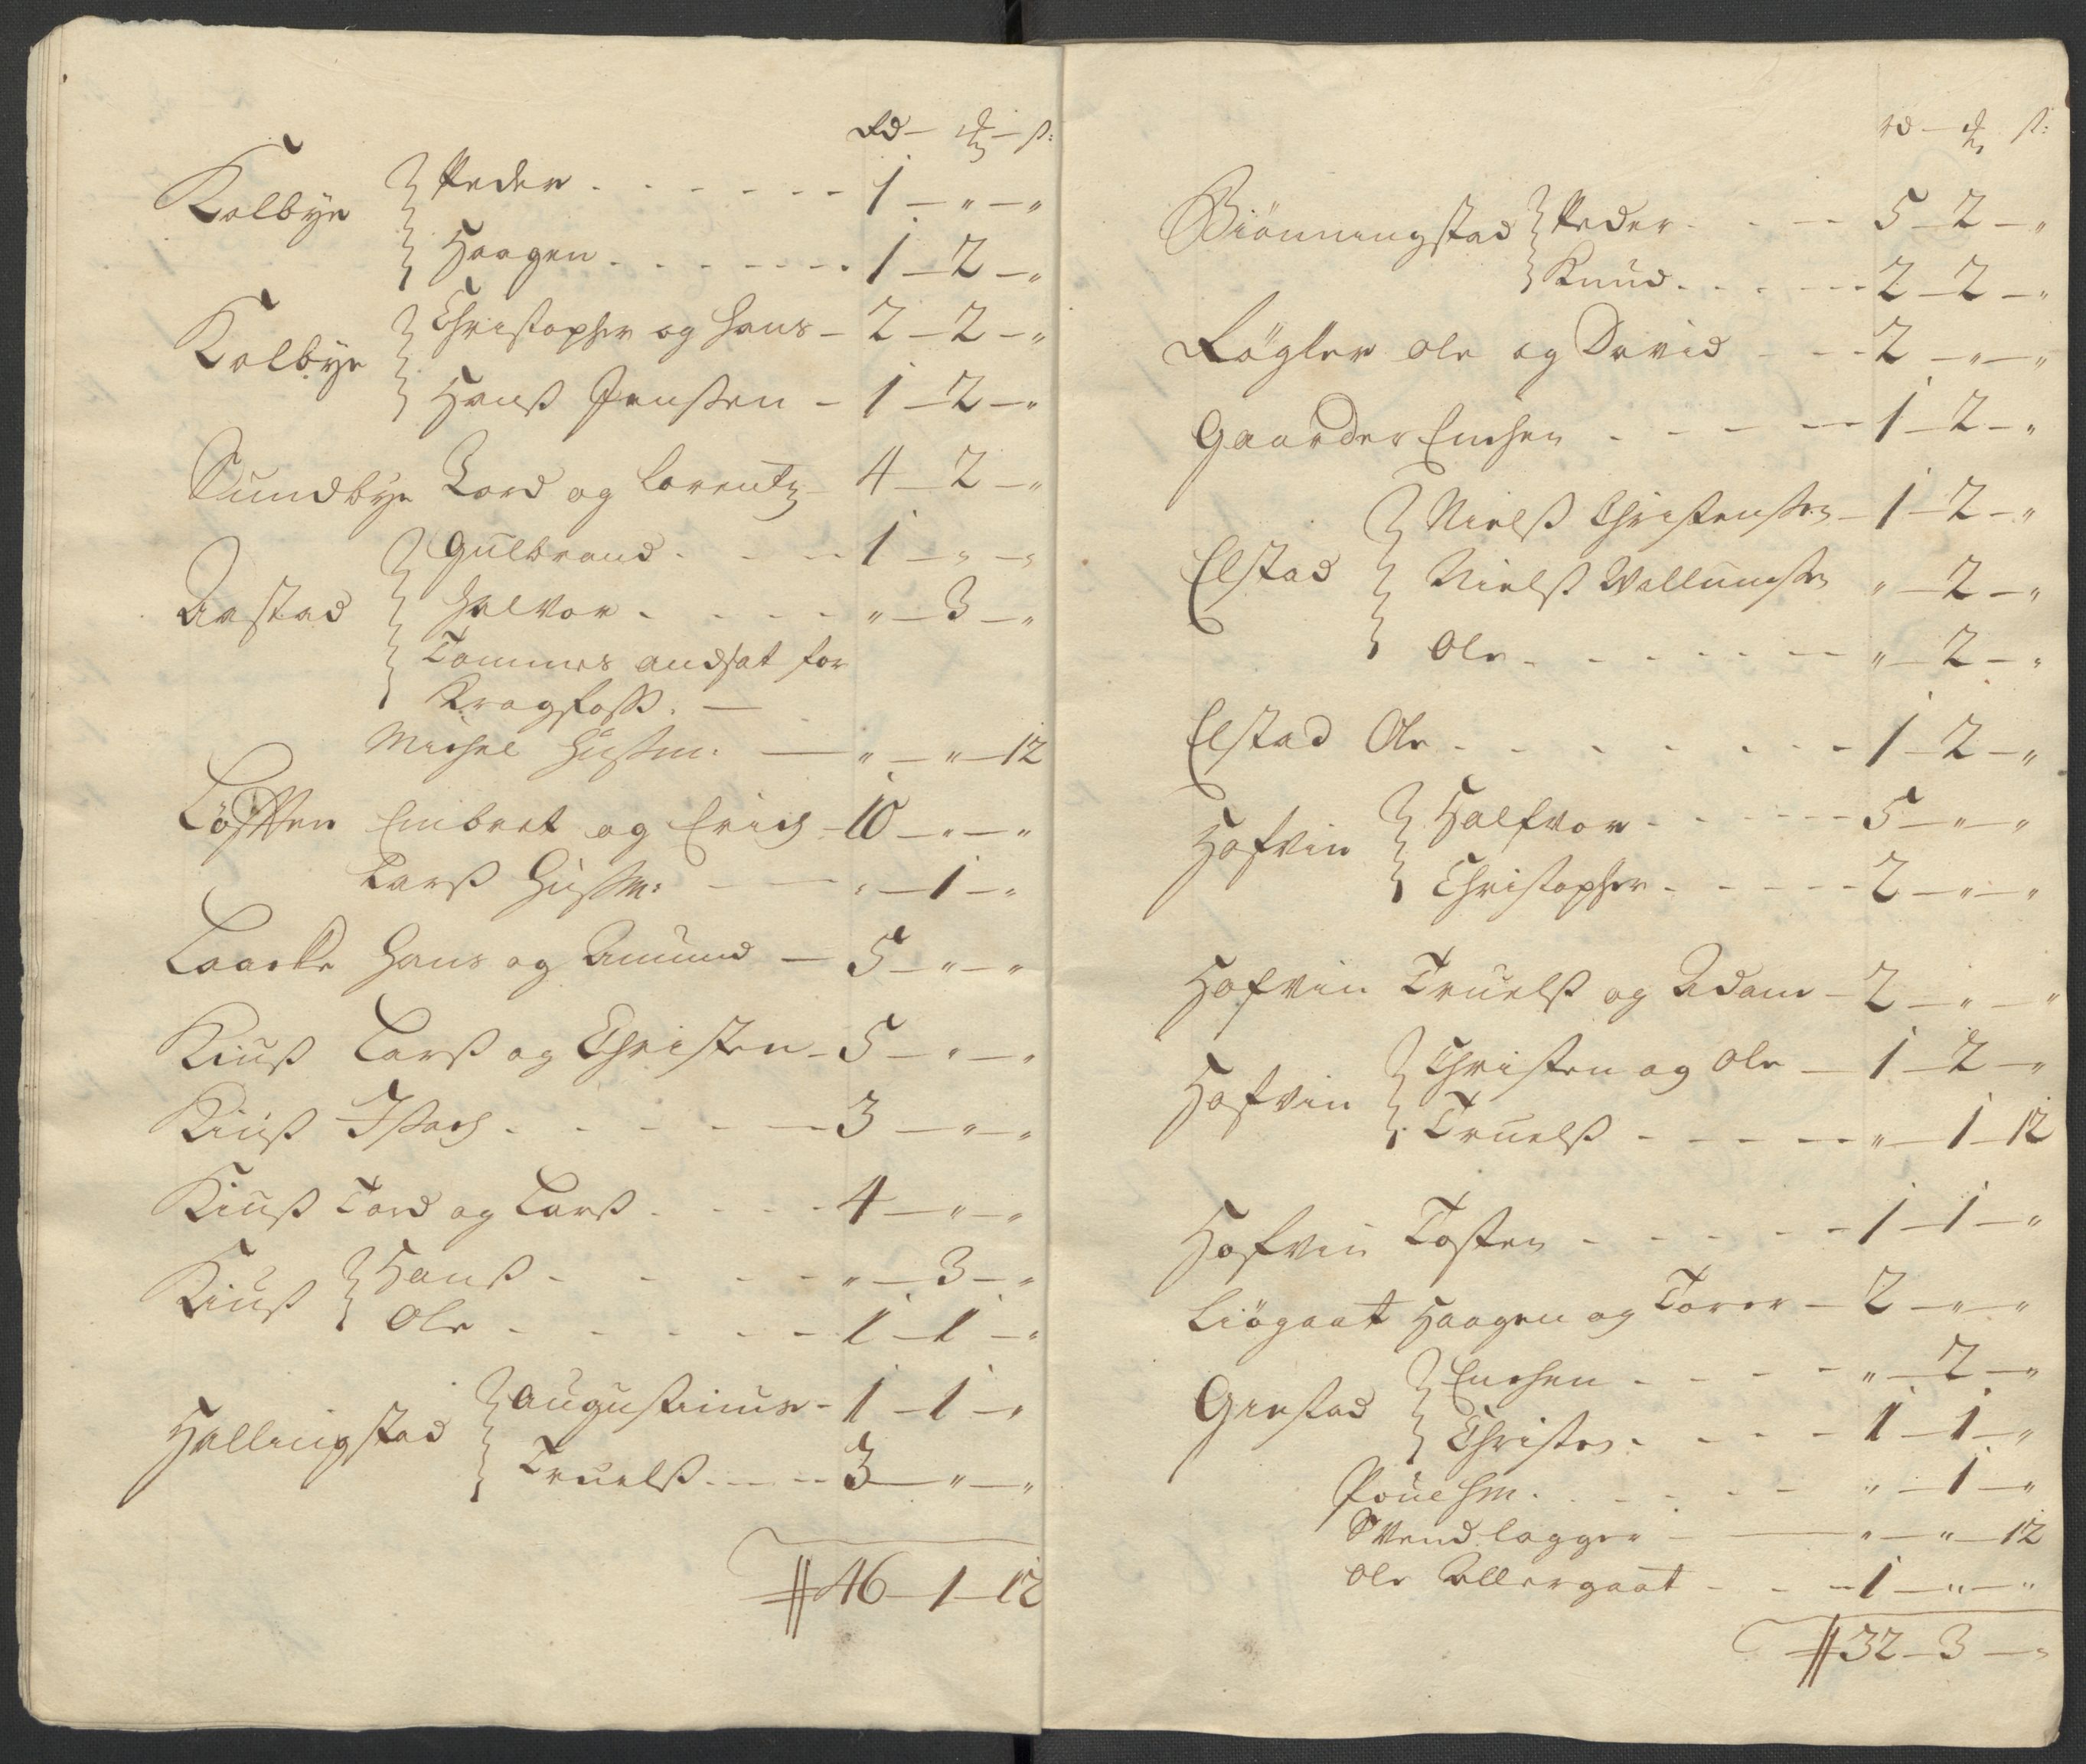 Rd — — ß:
Kolbye Peder . . . . . . 1 — " — "
Haagen . . . . . . . 1 — 2 — "
Kolbye Christopher og Hans — 2 — 2 — "
Hanß Jenßen — 1 — 2 — "
Sundbye Tord og Lorentz — 4 — 2 — "
Aastad Gulbrand . . . . 1 — " — "
Halvor . . . . . " — 3 — "
Tommes andsat for
Kragfoss. —
Michel Hüßm: — " — " — 12
Løfften Embret og Erich — 10 — " — "
Larß Hüßm: — " — 1 — "
Laache Hans og Amund — 5 — " — "
Kiuß Larß og Christen — 5 — " — "
Kiuß Ißach . . . . . . 3 — " — "
Kiuß Tord og Larß . . . . 4 — " — "
Kiuß Hanß . . . . . " — 3 — "
Ole . . . . . . 1 — 1 — "
Hallingstad Augustinus — 1 — 1 — "
Truelß . . . . 3 — " — "
46 — 1 — 12
rd — ß:
Biønningstad Peder . . . 5 — 2 — "
Knud . . . . . 2 — 2 — "
Røgler Ole og David . . . 2 — " — "
Gaarder Enchen . . . . . 1 — 2 — "
Elstad Nielß Christenßen — 1 — 2 — "
Nielß " — 2 — "
Ole . . . . . . . " — 2 — "
Elstad Ole . . . . . . . . 1 — 2 — "
Hofvin Halfvor . . . . . . 5 — " — "
Christopher . . . . . 2 — " — "
Hofvin Truelß og Adam — 2 — " — "
Hofvin Christen og Ole — 1 — 2 — "
Truelß . . . . . " — 1 — 12
Hofvin Tosten . . . . . . 1 — 1 — "
Liøgaat Haagen og Tover — 2 — " — "
Ginstad Enchen . . . . . " — 2 — "
Christen . . . . . 1 — 1 — "
Pouel hm . . . . . . " — 1 — "
Svend logger — " — " — 12
Ole Allergaat . . . 1 — " — "
32 — 3 — "